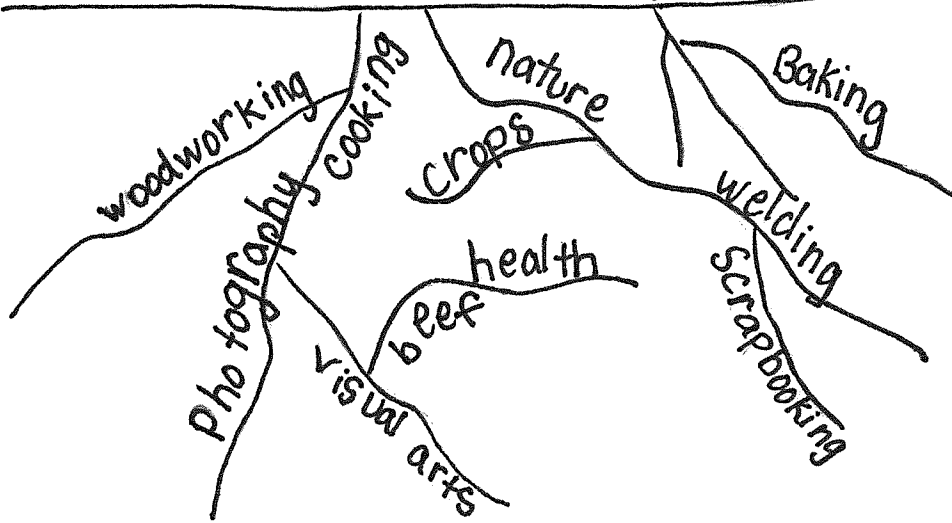 woodworking
cooking
Photography
nature
crops
Baking
welding
scrapbooking
health
beef
visual arts